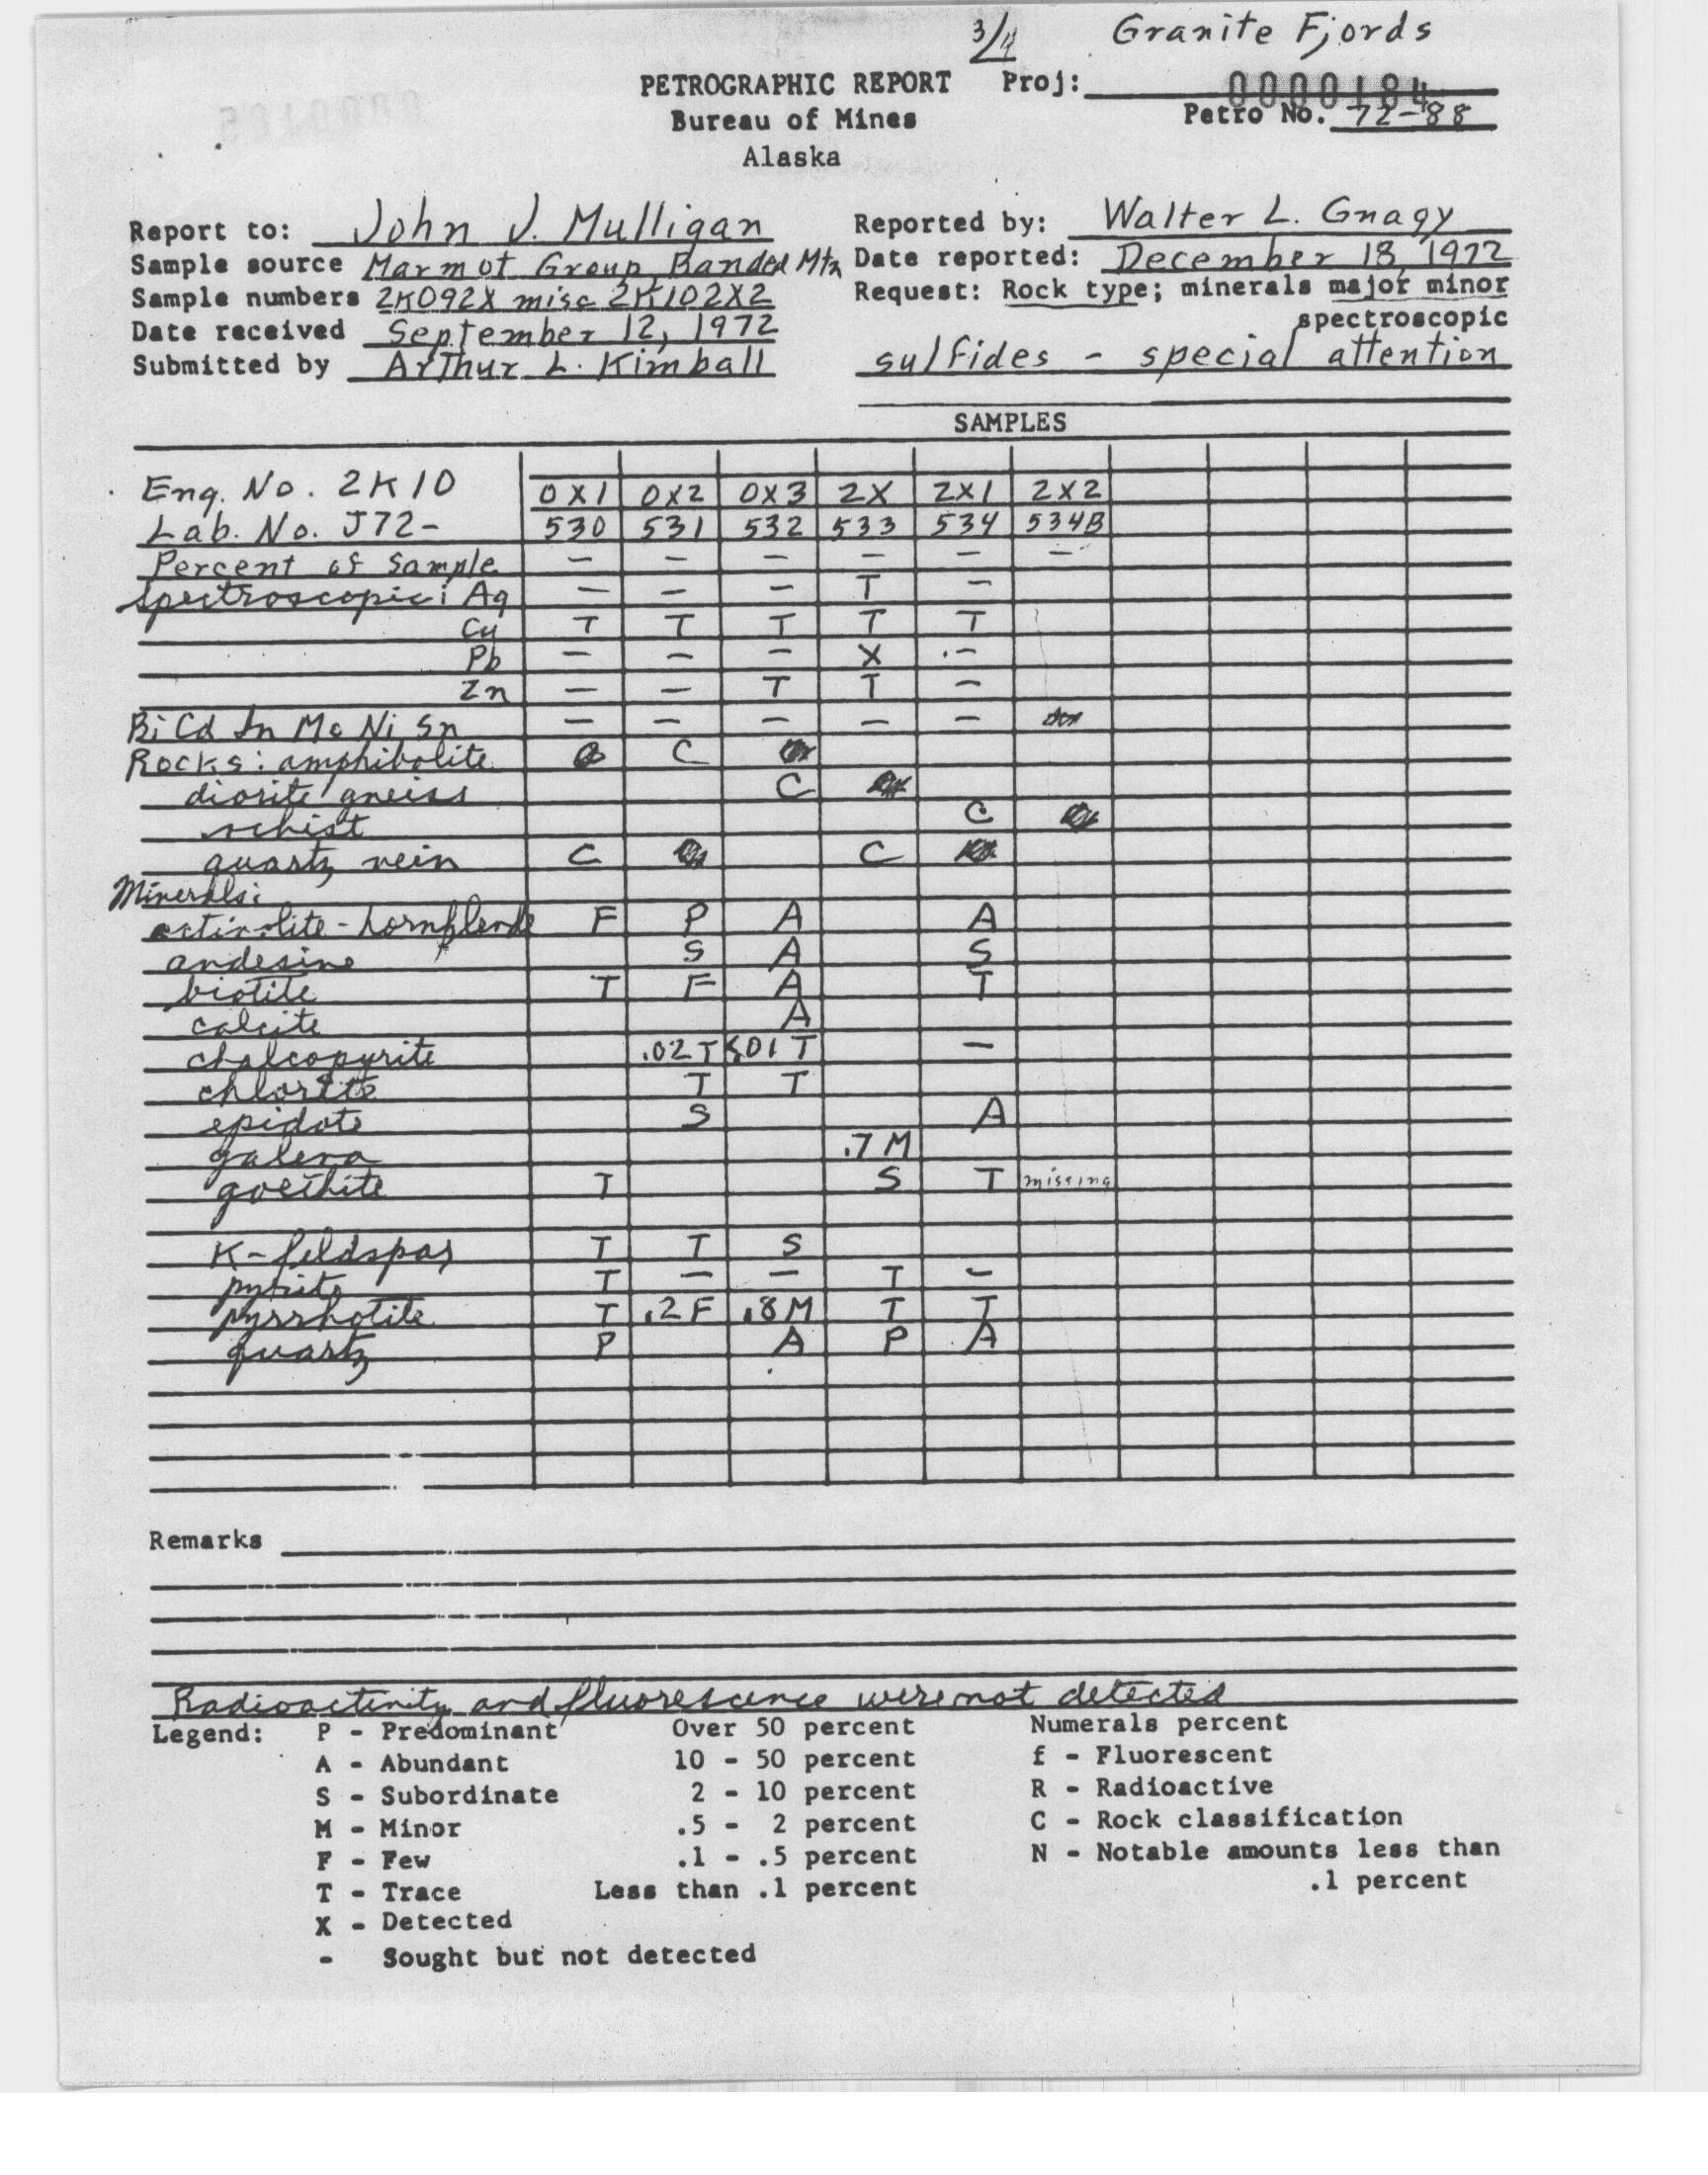 3/4 Granite Fjords
PETROGRAPHIC REPORT Proj: 0000184
Bureau of Mines Petro No. 72-88
Alaska
Report to: John J. Mulligan Reported by: Walter L. Gnagy
Sample source Marmot Group, Banded Mtn Date reported: December 18, 1972
Sample numbers 2K092X misc 2K102X2 Request: Rock type; minerals major minor
Date received September 12, 1972 spectroscopic
Submitted by Arthur L. Kimball sulfides - special attention
SAMPLES
Eng. No. 2K10 0X1 0X2 0X3 2X 2X1 2X2
Lab. No. J72- 530 531 532 533 534 534B
Percent of Sample - - - - - -
Spectroscopic: Ag - - - T -
Cu T T T T T
Pb - - - X -
Zn - - T T -
Bi Cd In Mo Ni Sn - - - - -
Rocks: amphibolite C
diorite gneiss C
schist C
quartz vein C C
Minerals:
actinolite-hornblende F P A A
andesine S A S
biotite T F A T
calcite A
chalcopyrite .02 T <.01 T -
chlorite T T
epidote S A
galena .7 M
goethite T S T missing
K-feldspar T T S
pyrite T - - T -
pyrrhotite T .2 F .8 M T T
quartz P A P A
Remarks
Radioactivity and fluorescence were not detected
Legend: P - Predominant Over 50 percent Numerals percent
A - Abundant 10 - 50 percent f - Fluorescent
S - Subordinate 2 - 10 percent R - Radioactive
M - Minor .5 - 2 percent C - Rock classification
F - Few .1 - .5 percent N - Notable amounts less than
T - Trace Less than .1 percent .1 percent
X - Detected
- Sought but not detected